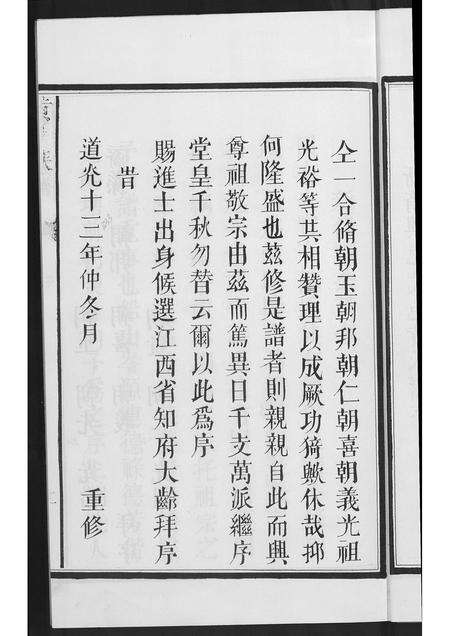 仝一合脩朝玉朝邦朝仁朝喜朝義光祖
光裕等共相贊理以成厥功猗歟休哉抑
何隆盛也茲修是譜者則親親自此而興
尊祖敬宗由茲而篤異日千支萬派繼序
堂皇千秋勿替云爾以此為序
賜進士出身候選江西省知府大齡拜序
旹
道光十三年仲冬月　重修